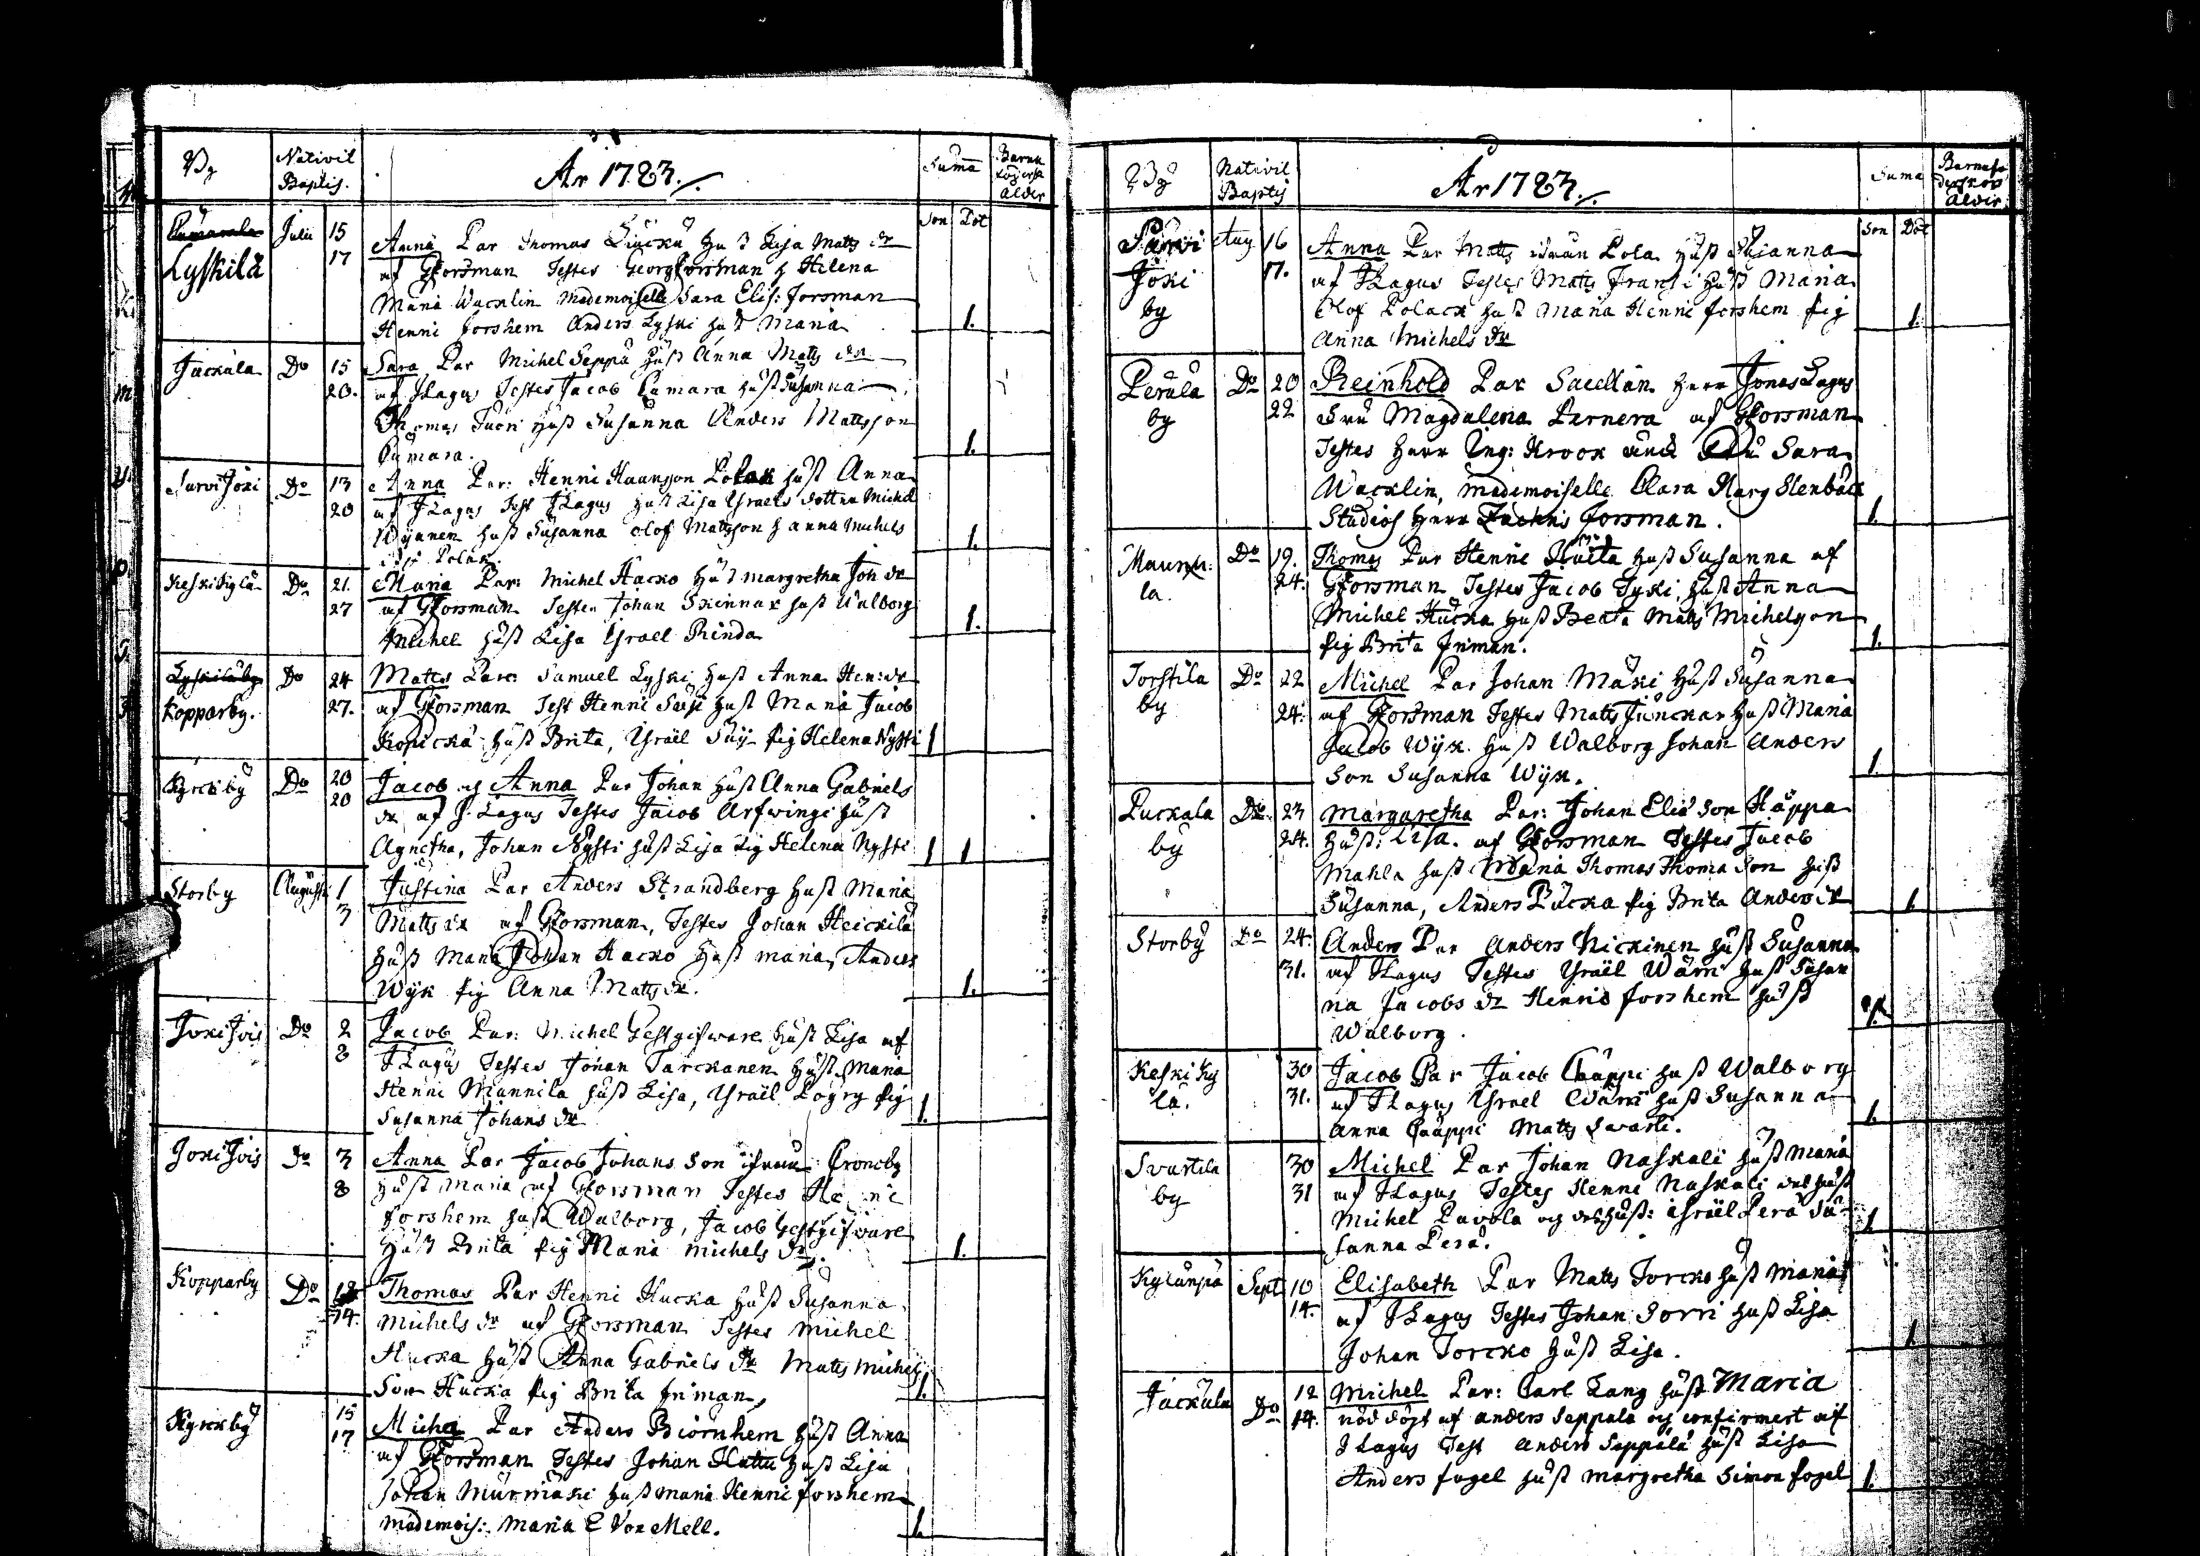 By Nativit År 1783. Suma Barna
Baptis.
Ålder
Son Dot
Lyskilä Julii 15 Anna Par Thomas hust Lisa Matts dr
17 af GForsman Testes Georg Forsman h Helena
Maria Wacklin Mademoiselle Sara Elis: Forsman
Henni Forshem Anders Lyski hust Maria 1.
Jåckala Do 15 Sara Par Michel Seppä hust Anna Matts dr
20. af JLagus Testes Jacob Cumara hust Susanna
Thomas Tuori hust Susanna Anders Mattsson
Cumara. 1.
Jurvi Joki Do 13 Anna Par: Henni Haansson Polak hust Anna
20 af JLagus Test JLagus hust Lisa Israels dotter Michel
Wynnen hust Susanna Olof Mattsson h Anna Michels
dr Polak. 1.
Keski Kylä Do 21. Maria Par: Michel Hacko hust Margretha Joh dr
27 af GForsman Testes Johan Skinnar hust Walborg
Michel hust Lisa Israel Rinda 1.
Lyskilä by Do 24 Matts Par: Samuel Lyski hust Anna Hen: dr
Kopparby. 27. af GForsman Test Henni hust Maria Jacob
Kopicka hust Brita, Israel pig Helena Nysti 1
Kyrckby Do 20 Jacob och Anna Par Johan hust Anna Gabriels
20 dr af J. Lagus Testes Jacob Arfwingi hust
Agnetha, Johan Nysti hust Lisa pig Helena Nysti 1 1
Storby Augusti 1 Justina Par Anders Strandberg hust Maria
3 Matts dr af GForsman, Testes Johan Heickilä
hust Maria Johan Hacko hust Maria, Anders
Wyk pig Anna Matts dr. 1.
Joki Jvis Do 2 Jacob Par: Michel Gestgifware hust Lisa af
8 JLagus Testes Johan Tarckanen hust Maria
Henni Mannila hust Lisa, Israel Pögry pig
Susanna Johans dr 1.
Joki Jvis Do 3 Anna Par Jacob Johans son ifrån Croneby
8 hust Maria af GForsman Testes Henni
Forshem hust Walborg, Jacob Gestgifware
hust Brita pig Maria Michels dr. 1.
Kopparby Do 12 Thomas Par Henni Hucka hust Susanna
14. Michels dr af GForsman Testes Michel
Hucka hust Anna Gabriels dr Matts Michel
Son Hucka pig Brita Friman, 1.
Kyrckby 15 Michel Par Anders Biörnhem hust Anna
17 af GForsman Testes Johan Hattu hust Lisa
Johan Murmäki hust Maria Henni Forshem
Mademois: Maria E Von Mell. 1.
By Nativit År 1783. Suma
Baptis
Ålder
Son Dot
Jurvi Aug 16 Anna Par Matts ifrån Pola hust Susanna
Joki 17. af JLagus Testes Matts Frantsi hust Maria
by Olof Polack hust Maria Henni Forshem pig
Anna Michels dr 1.
Perälä Do 20 Reinhold Par Sacellan Herr Jonas Lagus
by 22 Fru Magdalena Pernera af GForsman
Testes Herr Ing: Krook Fru Sara
Wacklin, Mademoiselle Clara Marg Stenbäck
Studios Herr Zachris Forsman. 1.
Maunu: Do 19. Thomas Par Henni hust Susanna af
la. 24. GForsman Testes Jacob Tyki, hust Anna
Michel Hucka hust Beata Matts Michelson
pig Brita Friman. 1.
Torstila Do 22 Michel Par Johan Mäki hust Susanna
by 24. af GForsman Testes Matts Junckar hust Maria
Jacob Wyk hust Walborg Johan Anders
Son Susanna Wyk. 1.
Puckala Do. 23 Margaretha Par: Johan Elis Son Häppa
by 24. hust: Lisa. af GForsman Testes Jacob
Mahla hust Maria Thomas Thoma Son hust
Susanna, Anders Pucka pig Brita Anders dr 1
Storby Do 24. Anders Par Anders Nickinen hust Susanna
31. af JLagus Testes Israel Wärri hust Susan
na Jacobs dr Hennis Forshem hust
Walborg. 1.
Keski Ky 30 Jacob Par Jacob Caappi hust Walborg
lä. 31. af JLagus Israel Wärri hust Susanna
Anna Caappi Matts Svarti. 1.
Svartila 30 Michel Par Johan Naskali hust Maria
by 31 af JLagus Testes Henni Naskali des hust
Michel Pavola och des hust: Israel Perä Su-
sanna Perä. 1
Kylänpä Sept 10 Elisabeth Par Matts Torcko hust Maria
14. af JLagus Testes Johan Sorri hust Lisa
Johan Torcko hust Lisa. 1
Jåckala Do 12 Michel Par: Carl Lang hust Maria
14. nöd döpt af Anders Seppälä och confirmert af
JLagus Test Anders Seppälä hust Lisa
Anders Fogel hust Margretha Simon Fogel 1.